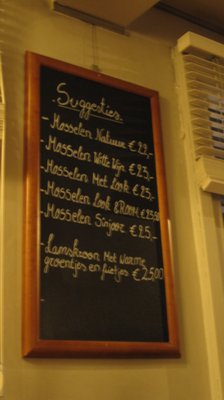 Suggesties
- Mosselen Natuur € 22,-
- Mosselen Witte Wijn € 25,-
- Mosselen Met Look € 25,-
- Mosselen Look &ROOM € 25,50
- Mosselen Sinjoor € 25,-
- Lamskroon Met Warme
groentjes en frietjes € 25,00
-